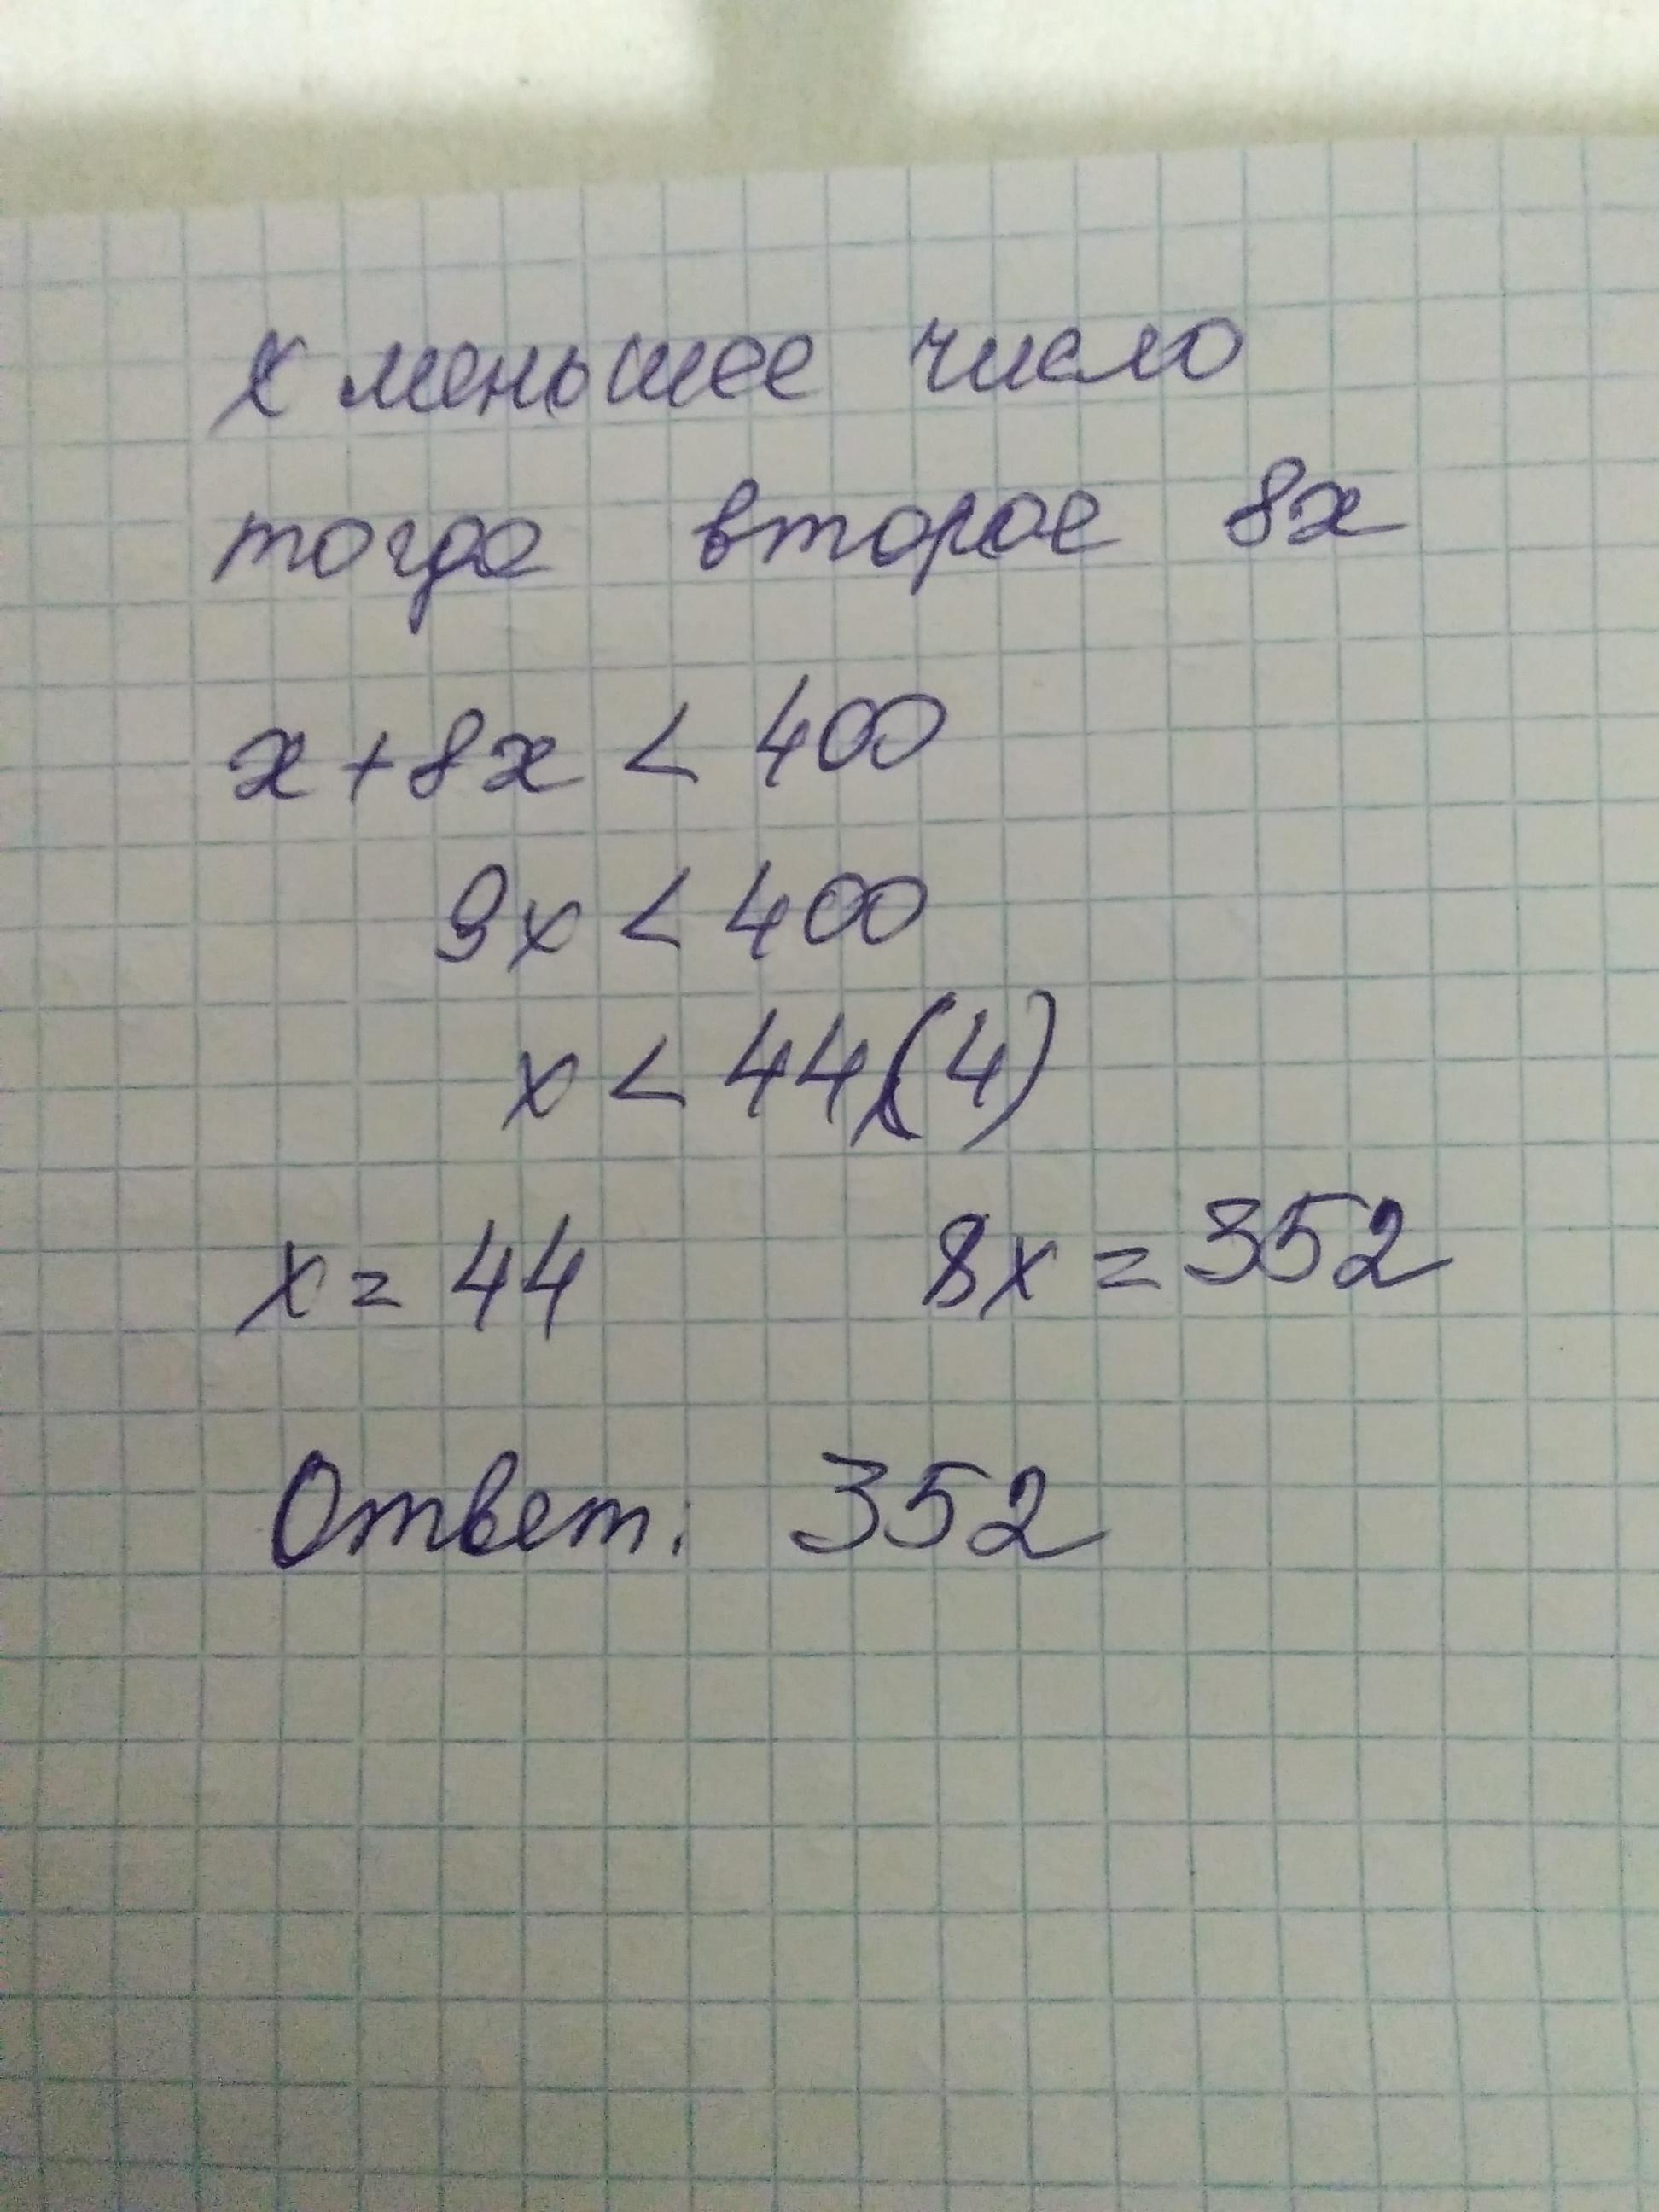 x меньшее число
тогда второе 8x
x + 8x < 400
9x < 400
x < 44,(4)
x = 44 8x = 352
Ответ: 352